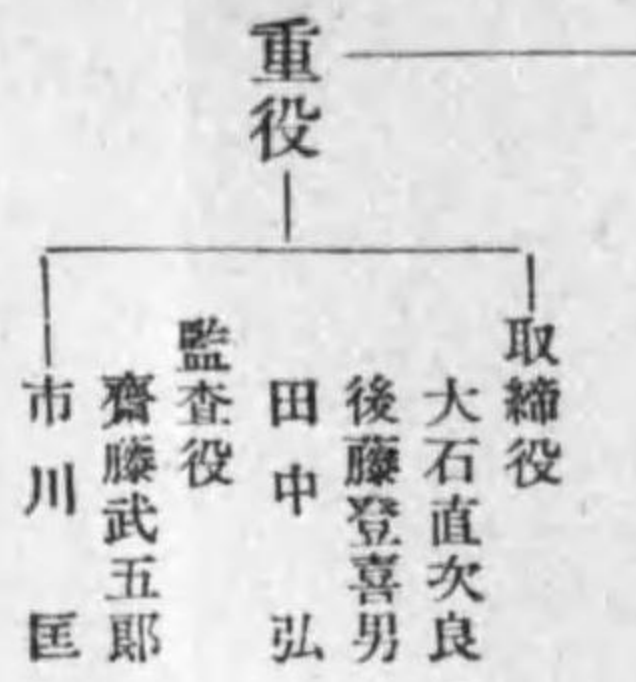 重役
取締役
大石直次良
後藤登喜男
田中弘
監査役
齋藤武五郎
市川匡